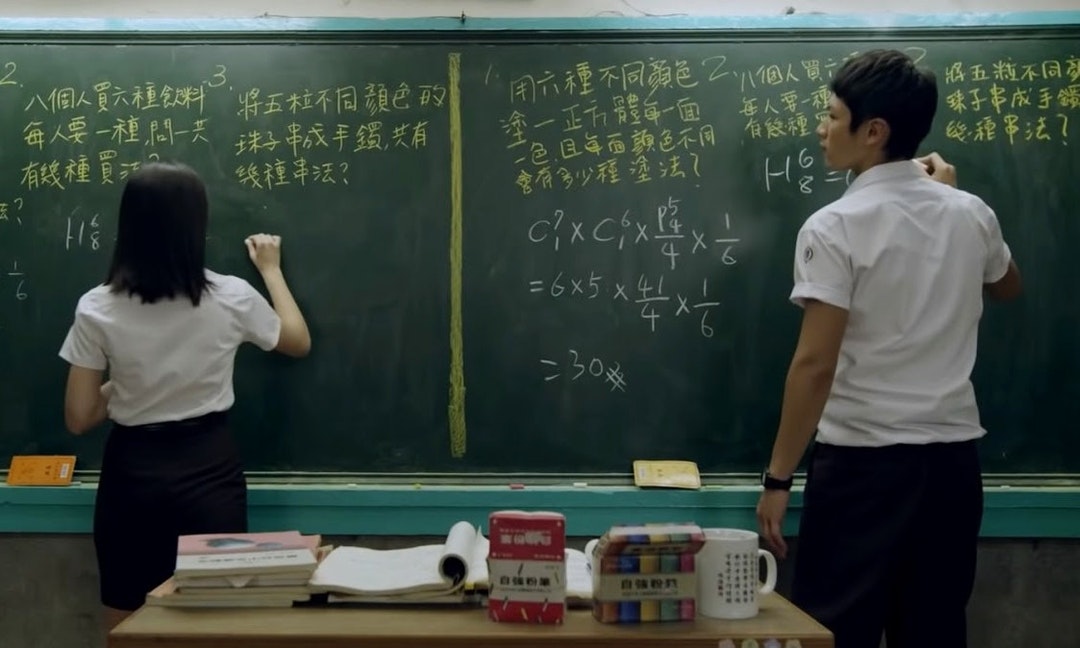 2.
八個人買六種飲料
每人要一種,問一共
有幾種買法
法?
H⁶₈
1/6
3.
將五粒不同顏色的
珠子串成手鐲,共有
幾種串法?
1.
用六種不同顏色
塗一正方體每一面
一色,且每面顏色不同
會有多少種塗法?
C₁ × C⁶₁ × P⁵₄/4 × 1/6
= 6×5 × 4!/4 × 1/6
= 30
2.
八個人買六
每人要一種
有幾種
H⁶₈ =
將五粒不同顏
珠子串成手鐲
幾種串法?
自強粉筆
自強粉筆